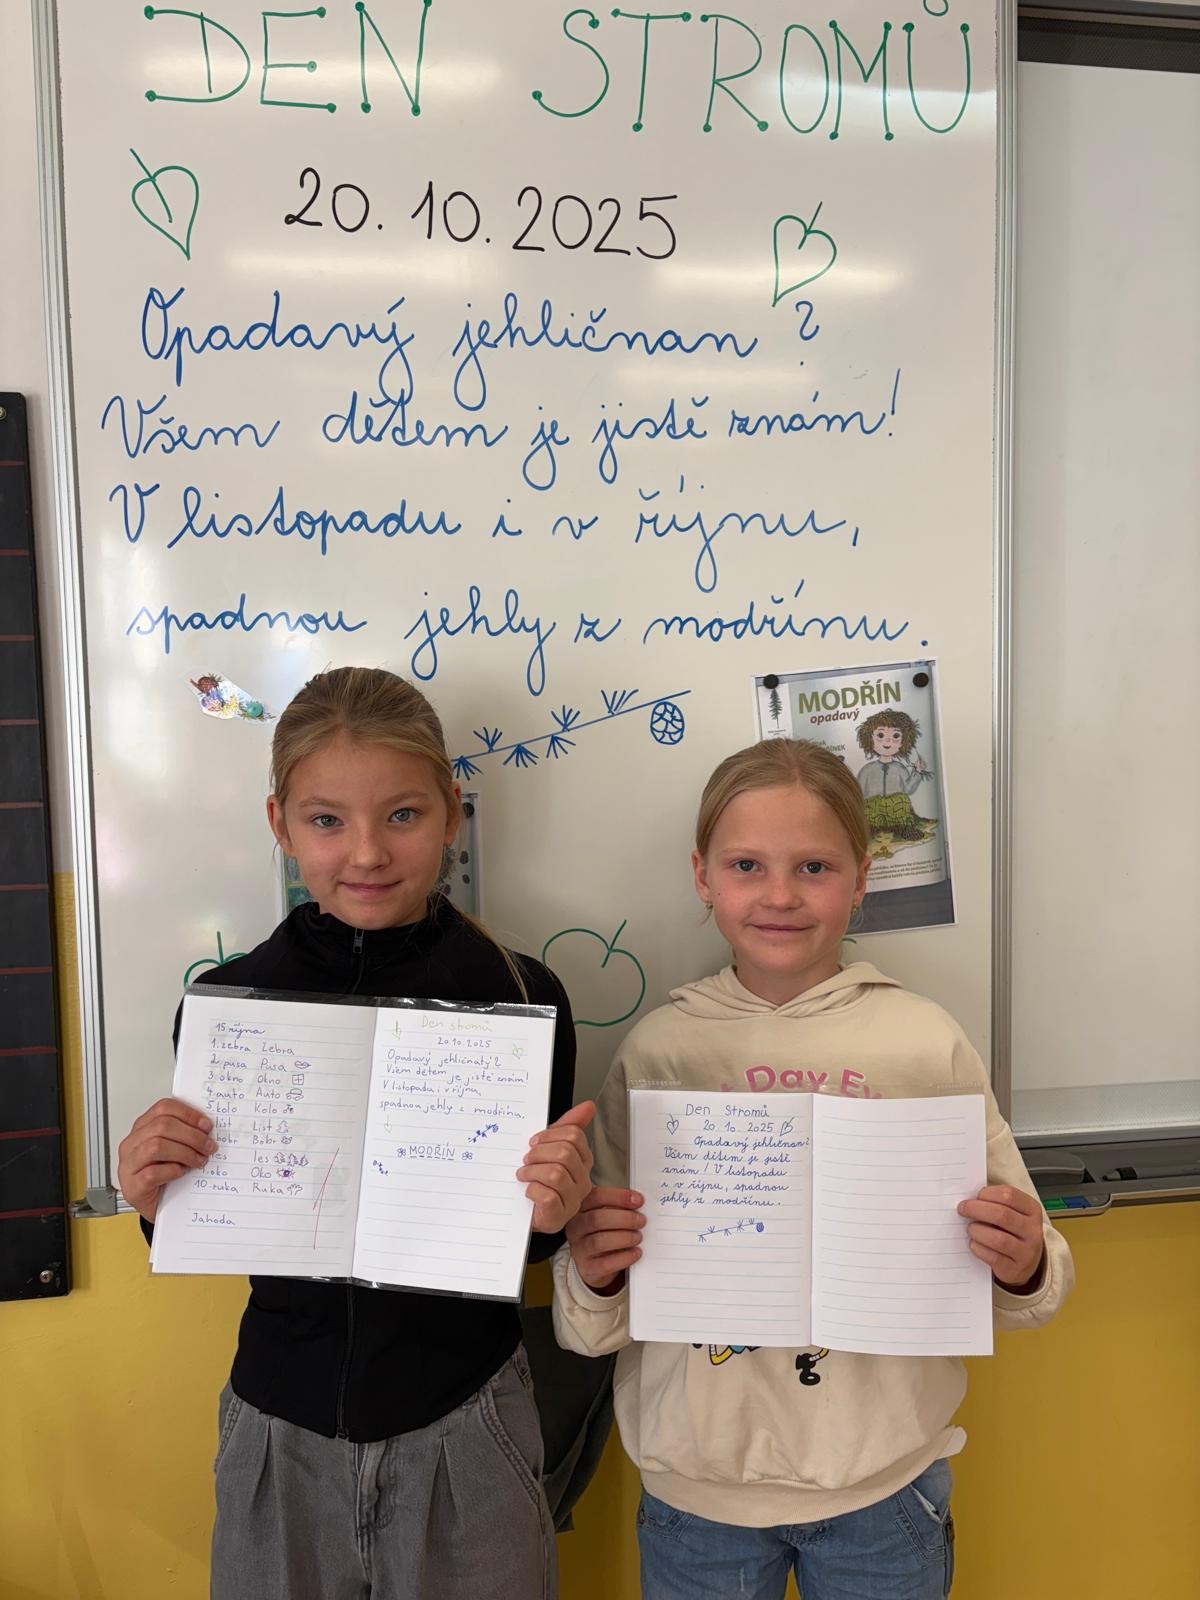 DEN STROMŮ
20. 10. 2025
Opadavý jehličnan ?
Všem dětem je jistě znám!
V listopadu i v říjnu,
spadnou jehly z modřínu.
MODŘÍN
opadavý
15 října
1. zebra Zebra
2. pusa Pusa
3. okno Okno
4. auto Auto
5. kolo Kolo
list List
bobr Bobr
les les
oko Oko
10. ruka Ruka
Jahoda
Den stromů
20.10.2025
Opadavý jehličnatý?
Všem dětem je jistě znám!
V listopadu i v říjnu,
spadnou jehly z modřínu.
MODŘÍN
Day
Den Stromů
20. 10. 2025
Opadavý jehličnan?
Všem dětem je jistě
znám! V listopadu
i v říjnu, spadnou
jehly z modřínu.